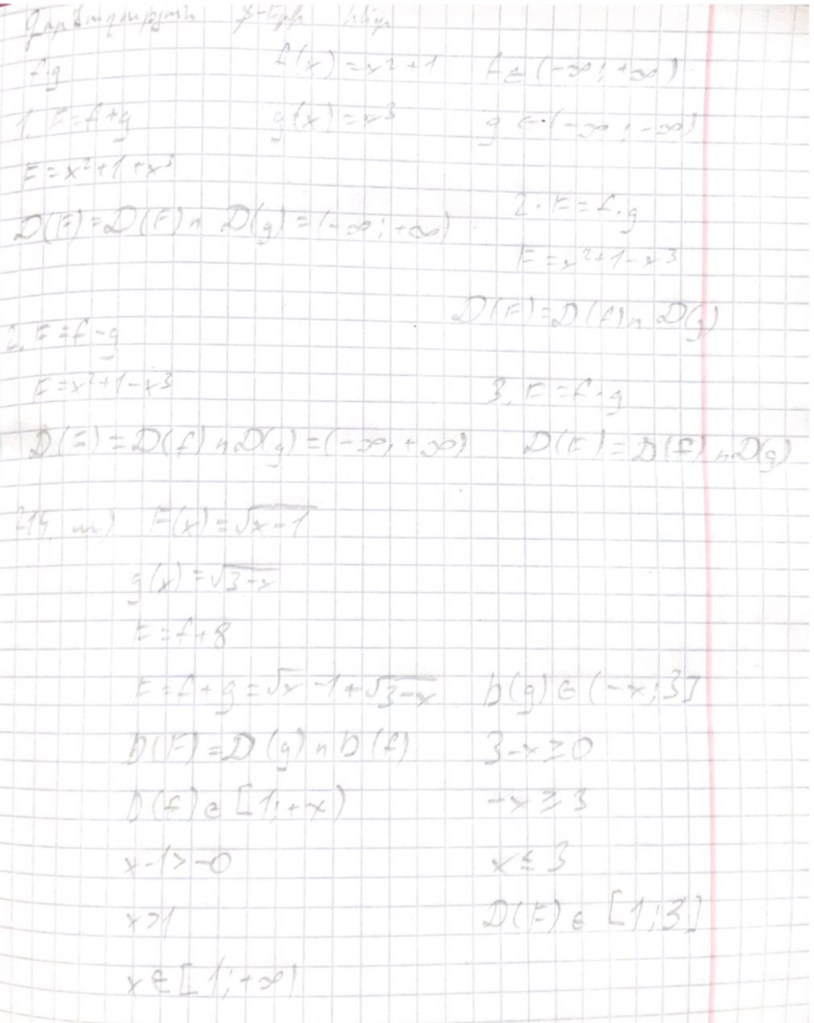 f.g f(x) = x²+1 f ∈ (-∞; +∞)
1. F=f+g g(x) = x³ g ∈ (-∞; -∞)
F = x²+1+x³
D(F) = D(f) ∩ D(g) = (-∞; +∞)
2. F=f.g
F = x²+1-x³
D(F)=D(f) ∩ D(g)
2. F=f-g
F=x²+1-x³
3. F=f.g
D(F) = D(f) ∩ D(g) = (-∞; +∞) D(F)=D(f) ∩ D(g)
214. F(x) = √x-1
g(x) = √3-x
F = f+8
F = f+g = √x-1+√3-x D(g) ∈ (-x; 3]
D(F) = D(g) ∩ D(f) 3-x≥0
D(f) ∈ [1; +x) -x≥3
x-1>-0 x≤3
x>1 D(F) ∈ [1; 3]
x ∈ [1; +∞)